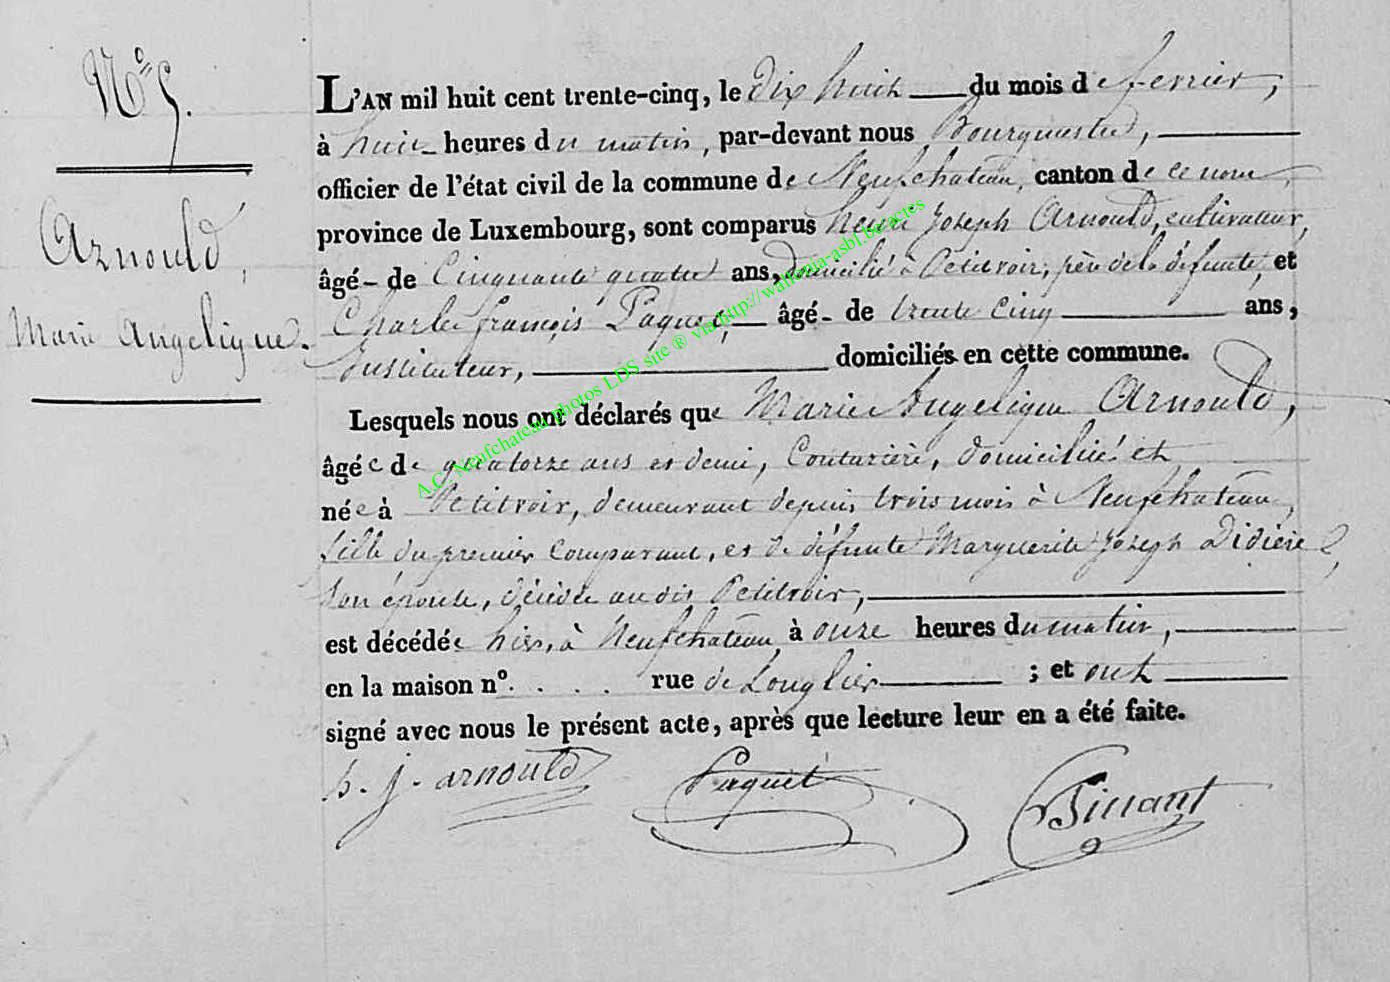 N° 5.
Arnould,
Marie Angelique.
L'AN mil huit cent trente-cinq, le dix huit du mois de fevrier,
à huit heures du matin, par-devant nous Bourgmestre,
officier de l'état civil de la commune de Neufchateau, canton de ce nom,
province de Luxembourg, sont comparus henri Joseph Arnould, cultivateur,
âgé - de Cinquante quatre ans, domicilié à Petitvoir, père de la défunte, et
Charles françois Paquet, âgé - de trente Cinq ans,
Instituteur, domiciliés en cette commune.
Lesquels nous ont déclarés que Marie Angelique Arnould,
âgée de quatorze ans et demi, Couturière, domiciliée et
née à Petitvoir, demeurant depuis trois mois à Neufchateau,
fille du premier Comparant, et de défunte Marguerite Joseph Didier
son épouse, décédée au dit Petitvoir,
est décédée hier, à Neufchateau à onze heures du matin,
en la maison n°. . . . . rue de Longlier ; et ont
signé avec nous le présent acte, après que lecture leur en a été faite.
h. j. arnould Paquet
A.C. Neufchateau photos LDS site ® via http://wallonia-asbl.be/actes